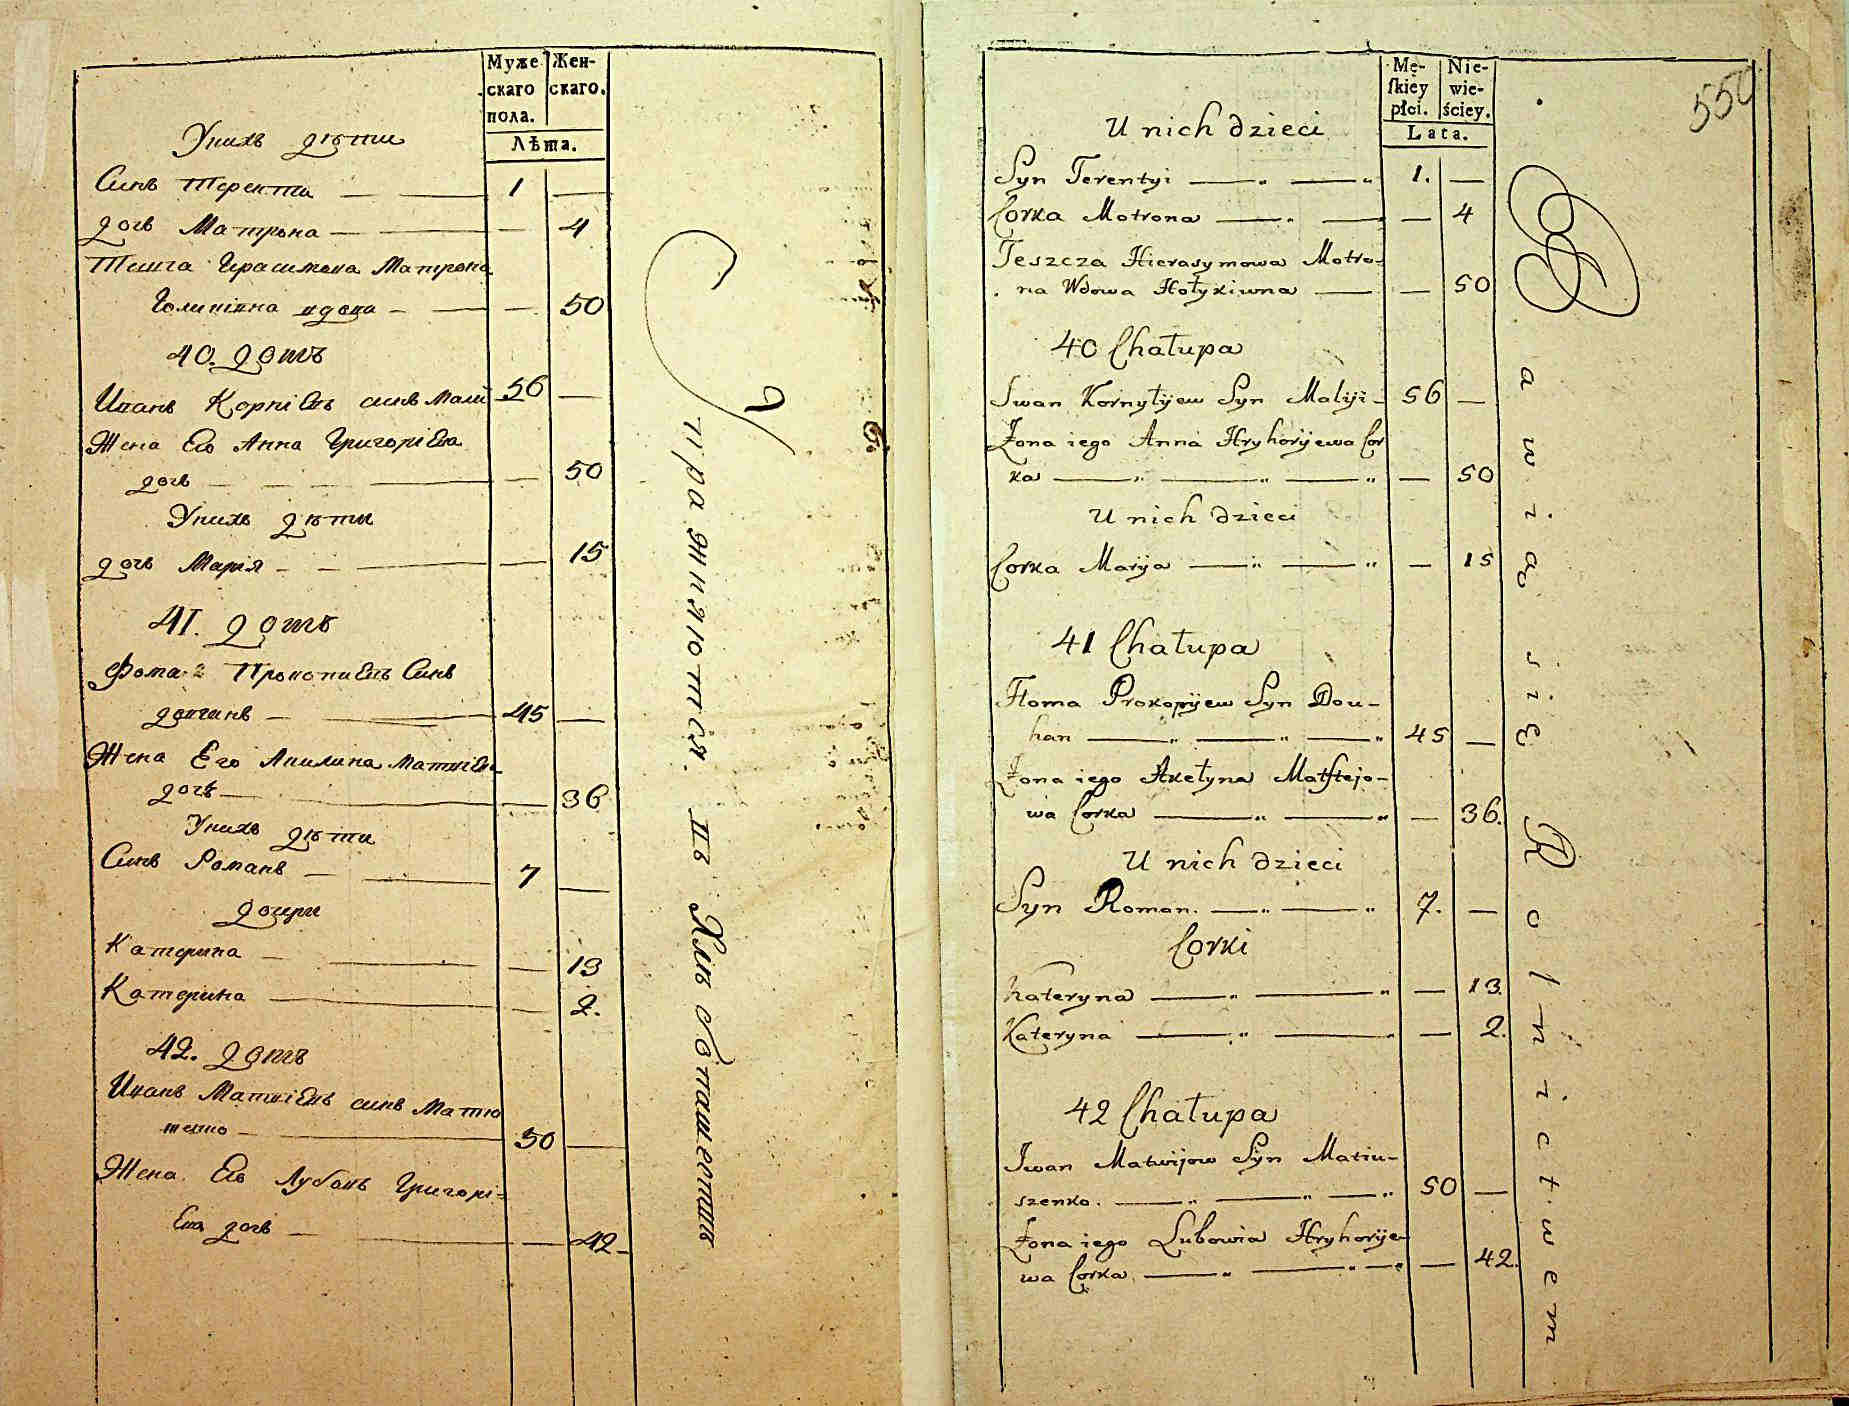 Муже
скаго
пола.
Жен-
скаго.
Лѣта.
Унихъ дѣти
Синъ Терентий 1
дочь Матрона 4
Тешча Герасимова Матрона
Голикiвна вдова 50
40. домъ
Иванъ Корнiевъ синъ Малий 56
Жена Его Анна Григорiева
дочь 50
Унихъ дѣти
дочь Марiя 15
41. домъ
Фома Прокопиевъ Синъ
довганъ 45
Жена Его Акилина Матвiева
дочь 36
Унихъ дѣти
Синъ Романъ 7
дощри
Катерина 13
Катерина 2.
42. домъ
Иванъ Матвiевъ синъ Матю
шенко 50
Жена Его Лубовъ Григорi=
Ева дочь 42
Упражняются въ Хлѣбопашествѣ
550
Mę-
ſkiey
płci.
Nie-
wie-
ściey.
Lata.
U nich dzieci
Syn Terentyi 1.
Corka Motrona 4
Teszcza Hierasymowa Motro-
na Wdowa Hołykiwna 50
40 Chałupa
Iwan Kornyłyjew Syn Malyji 56
Żona iego Anna Hryhoryjewa Cor
ka 50
U nich dzieci
Corka Marya 15
41 Chałupa
Homa Prokopyjew Syn Dou-
han 45
Żona iego Akełyna Matftejo-
wa Corka 36.
U nich dzieci
Syn Roman. 7.
Corki
Kateryna 13.
Kateryna 2.
42 Chałupa
Iwan Matwijow Syn Matiu-
szenko. 50
Żona iego Lubowia Hryhoryje-
wa Corka 42.
Bawią się Rolnictwem